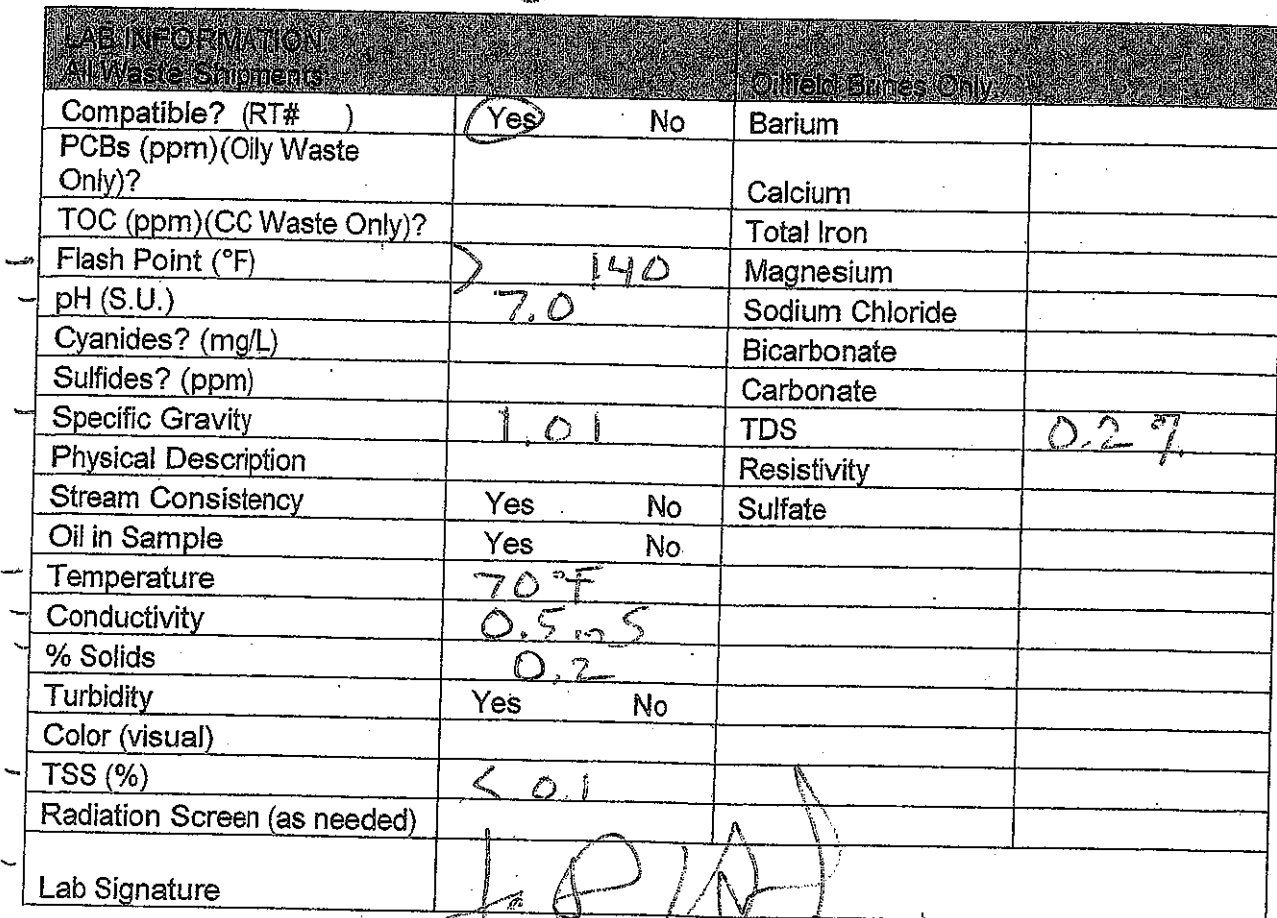 LAB INFORMATION
All Waste Shipments Oilfield Brines Only
Compatible? (RT# ) Yes No Barium
PCBs (ppm)(Oily Waste
Only)? Calcium
TOC (ppm)(CC Waste Only)? Total Iron
Flash Point (°F) > 140 Magnesium
pH (S.U.) 7.0 Sodium Chloride
Cyanides? (mg/L) Bicarbonate
Sulfides? (ppm) Carbonate
Specific Gravity 1.01 TDS 0.2 %
Physical Description Resistivity
Stream Consistency Yes No Sulfate
Oil in Sample Yes No
Temperature 70 °F
Conductivity 0.5 mS
% Solids 0.2
Turbidity Yes No
Color (visual)
TSS (%) < 0.1
Radiation Screen (as needed)
Lab Signature